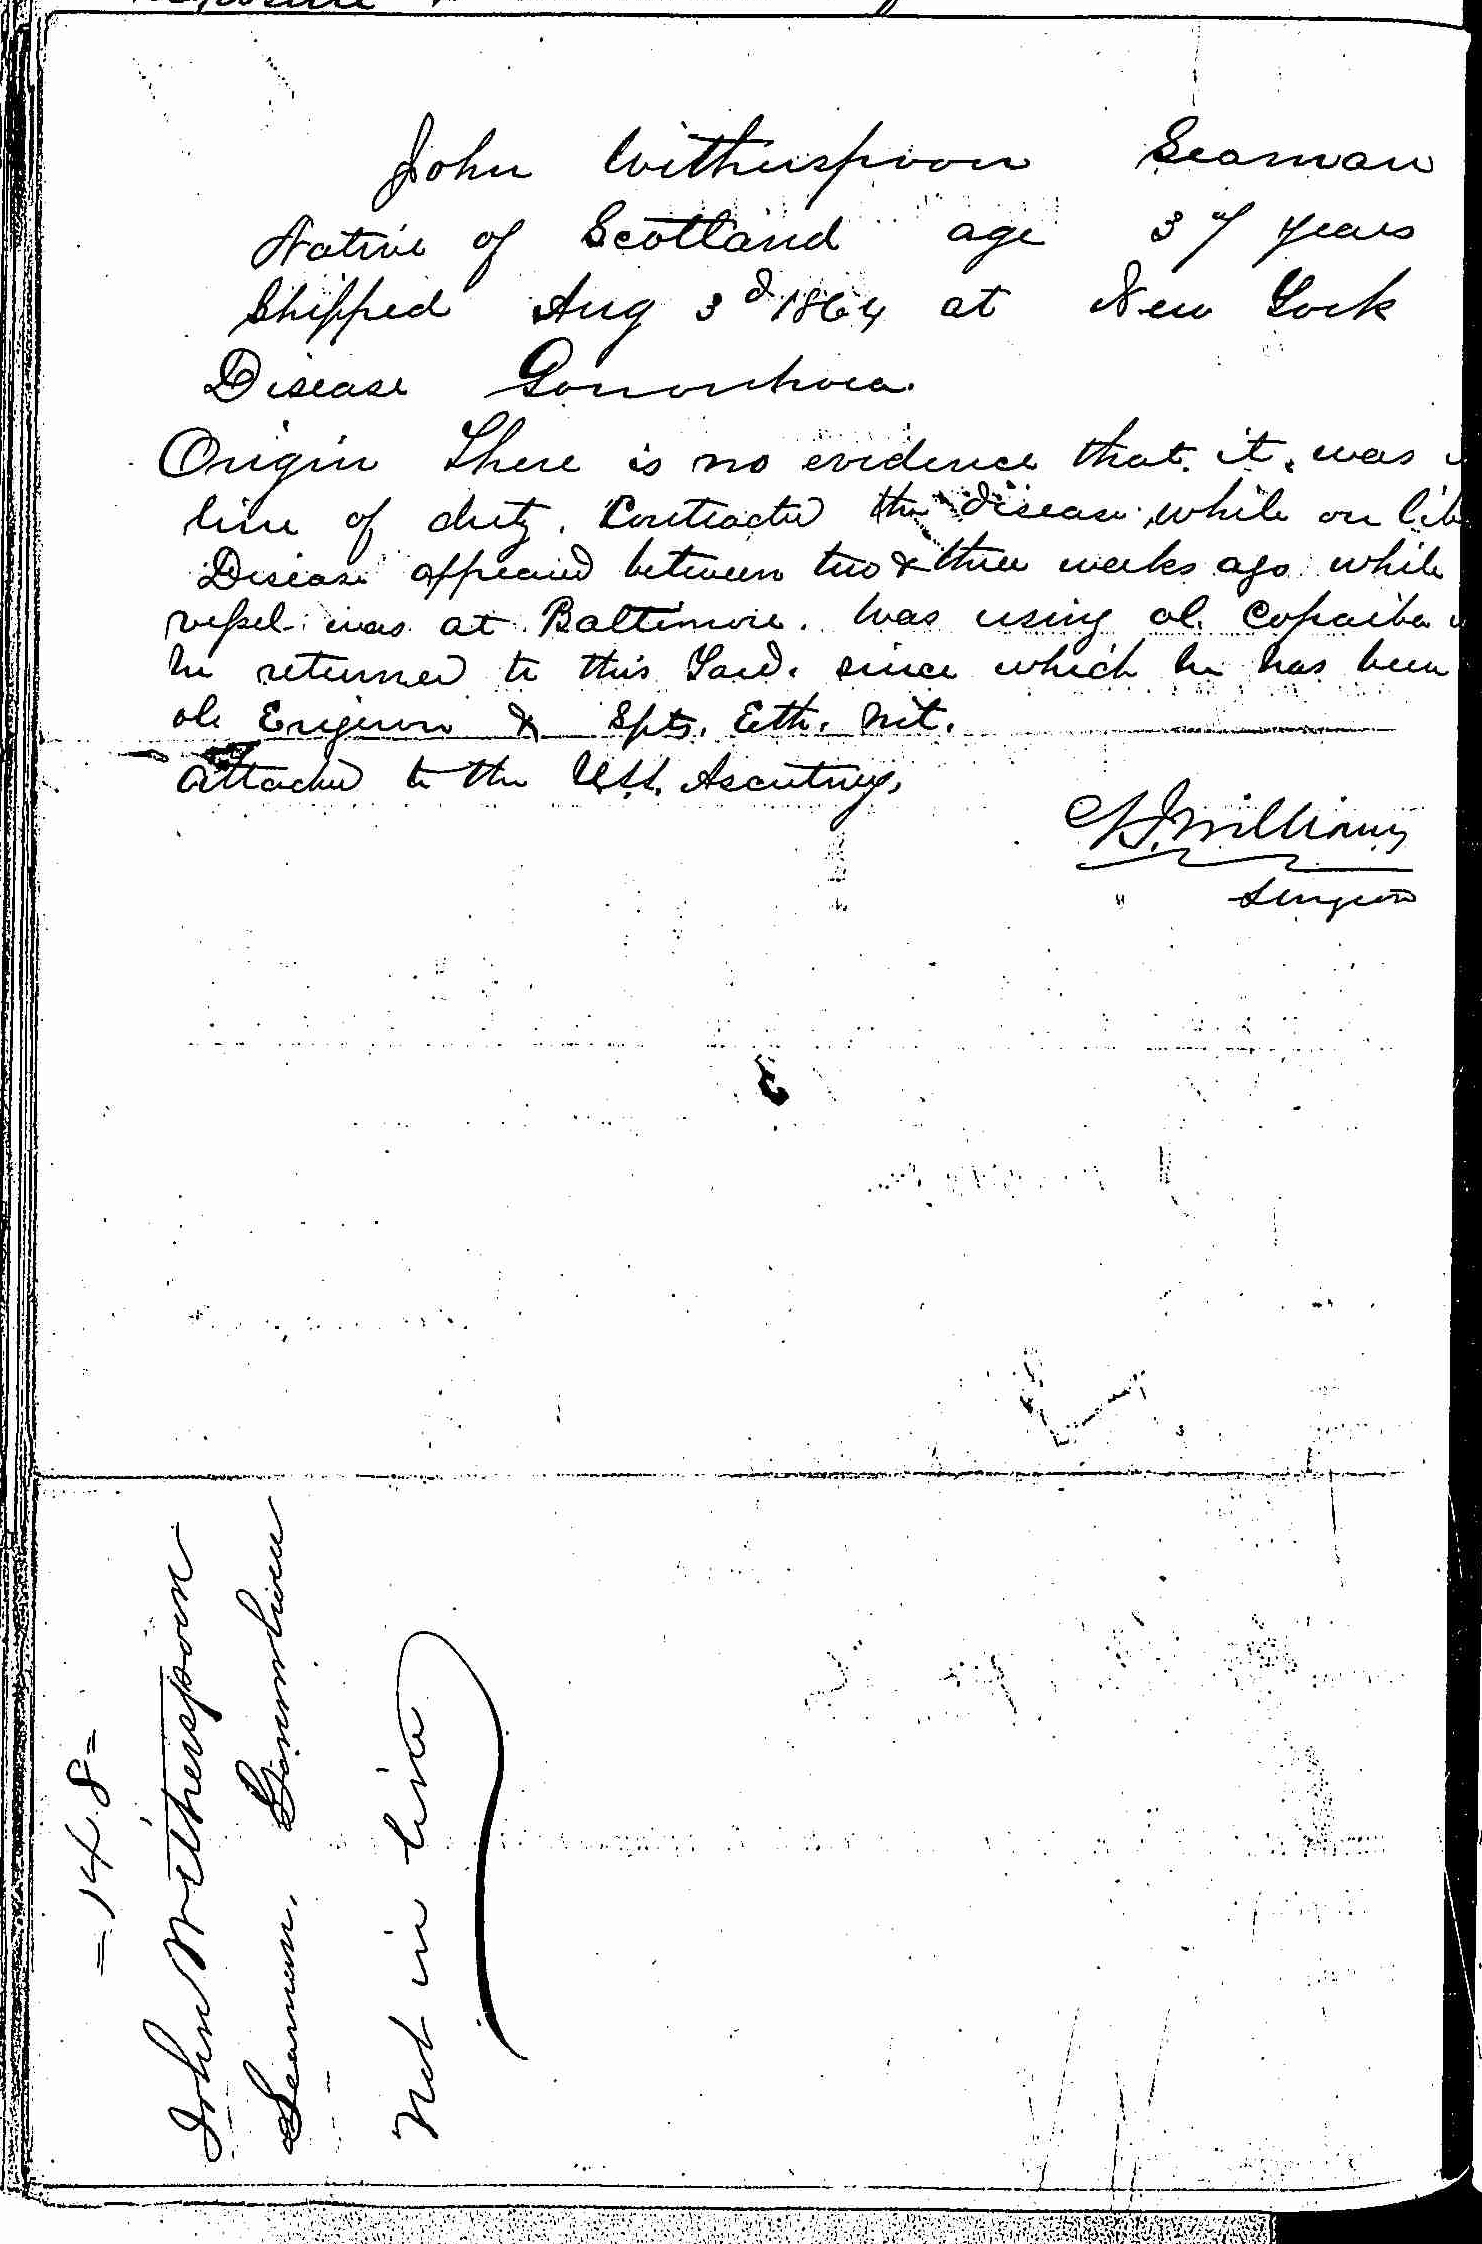 John Witherspoon Seaman
Native of Scotland age 37 years
Shipped Aug 3d 1864 at New York
Disease Gonorrhoea.
Origin There is no evidence that it was
line of duty. Contracted the disease while on lib
Disease appeared between two & three weeks ago while
vessel was at Baltimore. Was using ol. Copaiba
he returned to this Yard. since which he has been
ol. Erigeron & Spts. Eth. Nit.
Attached to the U.S.S. Ascutney.
Williams
Surgeon
= 148 =
John Witherspoon
Seaman. Gonorrhoea
Not in line